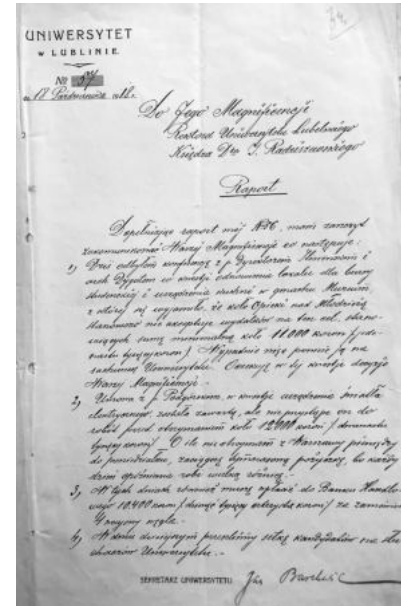 UNIWERSYTET
W LUBLINIE.
№ 97
18 Października 1918.
Do Jego Magnificencji
Rektora Uniwersytetu Lubelskiego
Księdza Dra I. Radziszewskiego
Raport
Dopełniając raport mój № 86, mam zaszczyt
zakomunikować Waszej Magnificencji co następuje:
1) Dziś odbyłem konferencję z p. Dyrektorem i
arch. w kwestji lokalu dla bursy
studenckiej i urządzenia w gmachu Muzeum,
z której się wyjaśniło, że koło Opieki nad Młodzieżą
nie akceptuje wydatków na ten cel, stano-
wiących sumę minimalną koło 11000 koron (jede-
naście tysięcy koron). Wypadnie więc ponieść ją na
rachunek Uniwersytetu. Oczekuję w tej kwestji decyzji
Waszej Magnificencji.-
2) Umowa z p. w kwestji urządzenia światła
elektrycznego, została zawartą, ale nie przystąpi on do
robót przed otrzymaniem koło 12000 koron (dwanaście
tysięcy koron). O ile nie otrzymam z Warszawy pieniędzy
do poniedziałku, zaciągnę pożyczkę, bo każdy
dzień opóźnienia robi wielką różnicę.-
3) W tych dniach również muszę wpłacić do Banku Handlo-
wego 10.400 koron (dziesięć tysięcy czterysta koron) za zamówione
4 wagony węgla.-
4) W dniu dzisiejszym przeszliśmy setkę kandydatów na słu-
chaczów Uniwersytetu.-
SEKRETARZ UNIWERSYTETU